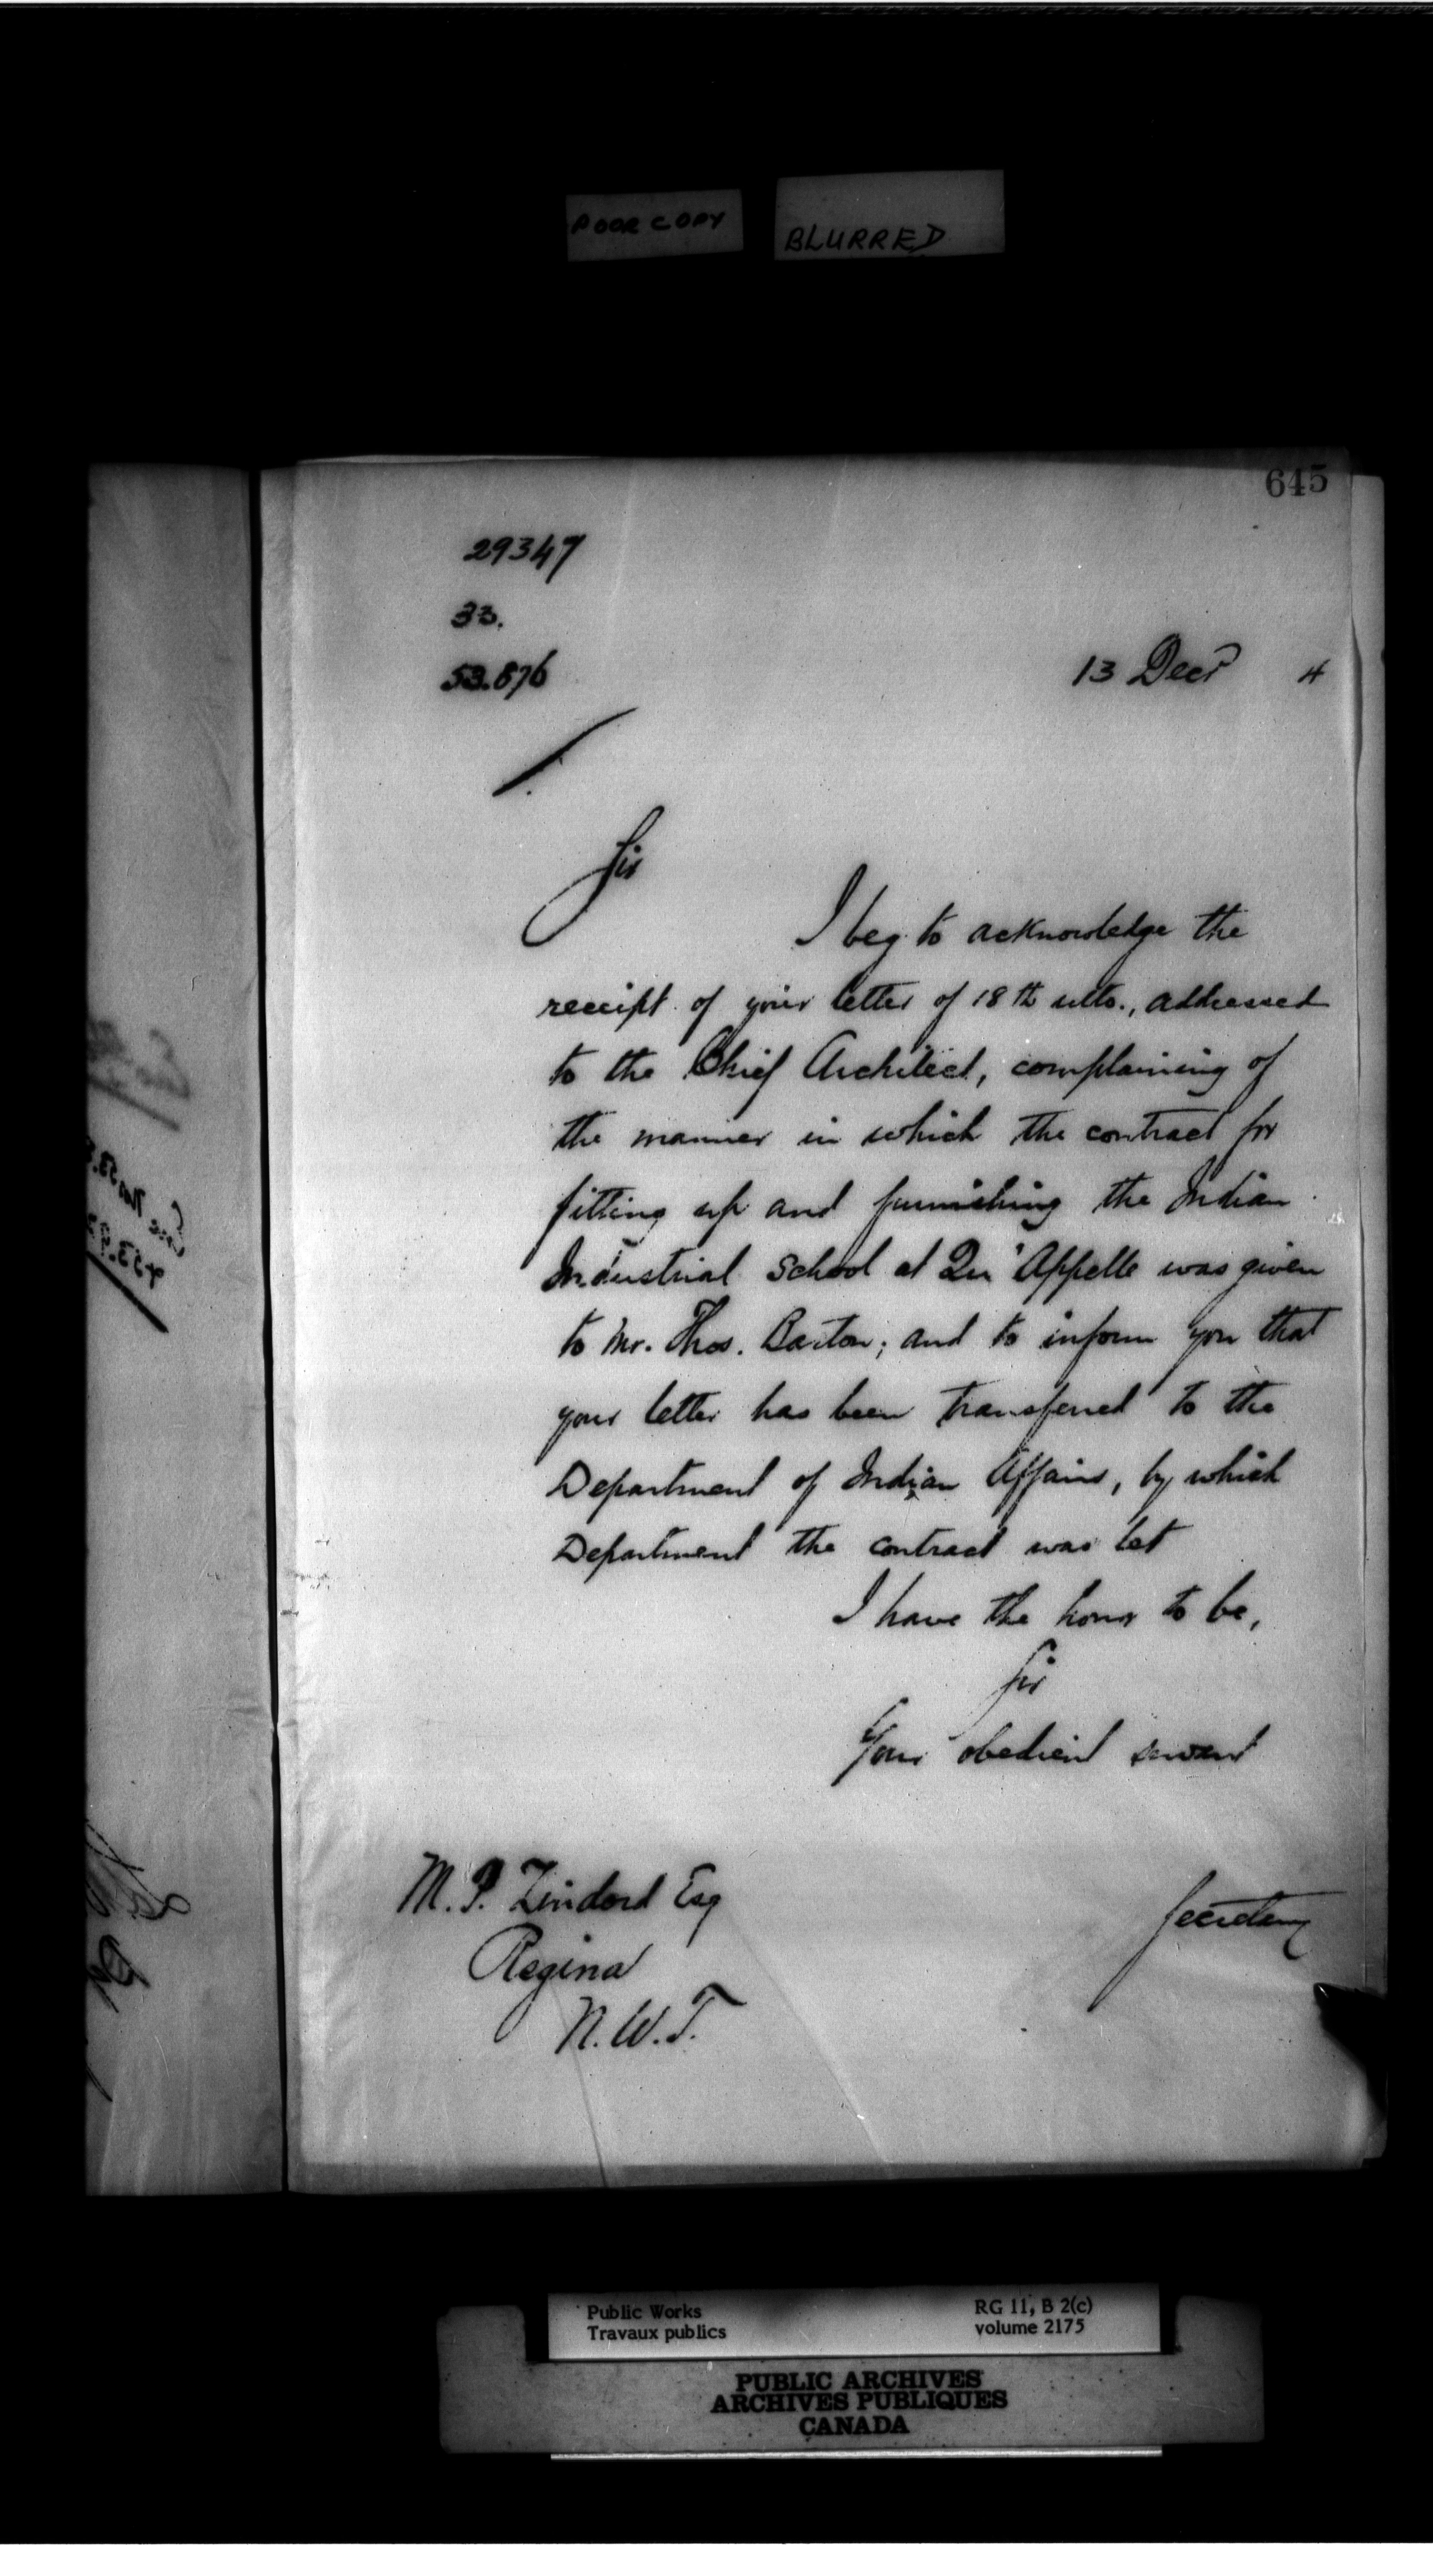 POOR COPY
BLURRED
645
29347
33.
53.876
13 Decr 4
Sir
I beg to acknowledge the
receipt of your letter of 18th ulto., addressed
to the Chief Architect, complaining of
the manner in which the contract for
fitting up and furnishing the Indian
Industrial School at Qu'Appelle was given
to Mr. Thos. Barton; and to inform you that
your letter has been transferred to the
Department of Indian Affairs, by which
Department the contract was let
I have the honor to be,
Sir
Your obedient servant
M. P. Esq
Secretary
Regina
N.W.T.
Public Works
Travaux publics
RG 11, B 2(c)
volume 2175
PUBLIC ARCHIVES
ARCHIVES PUBLIQUES
CANADA